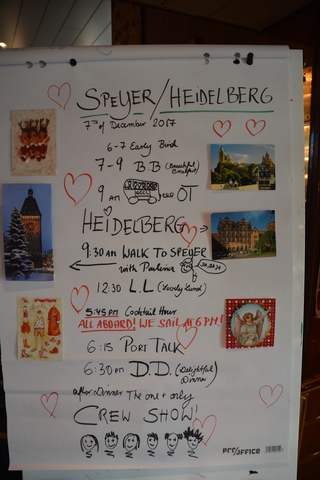 SPEYER/HEIDELBERG
7th of December 2017
6-7 Early Bird
7-9 B.B (Beautiful Breakfast)
9 AM free OT
HEIDELBERG
9:30 AM WALK TO SPEYER
with Pauliner
12:30 L.L (Lovely Lunch)
5:45 PM Cocktail Hour
ALL ABOARD! WE SAIL AT 6 PM!
6:15 PORT TALK
6:30 PM D.D. (Delightful Dinner)
after Dinner The one + only
CREW SHOW!
PRO/OFFICE